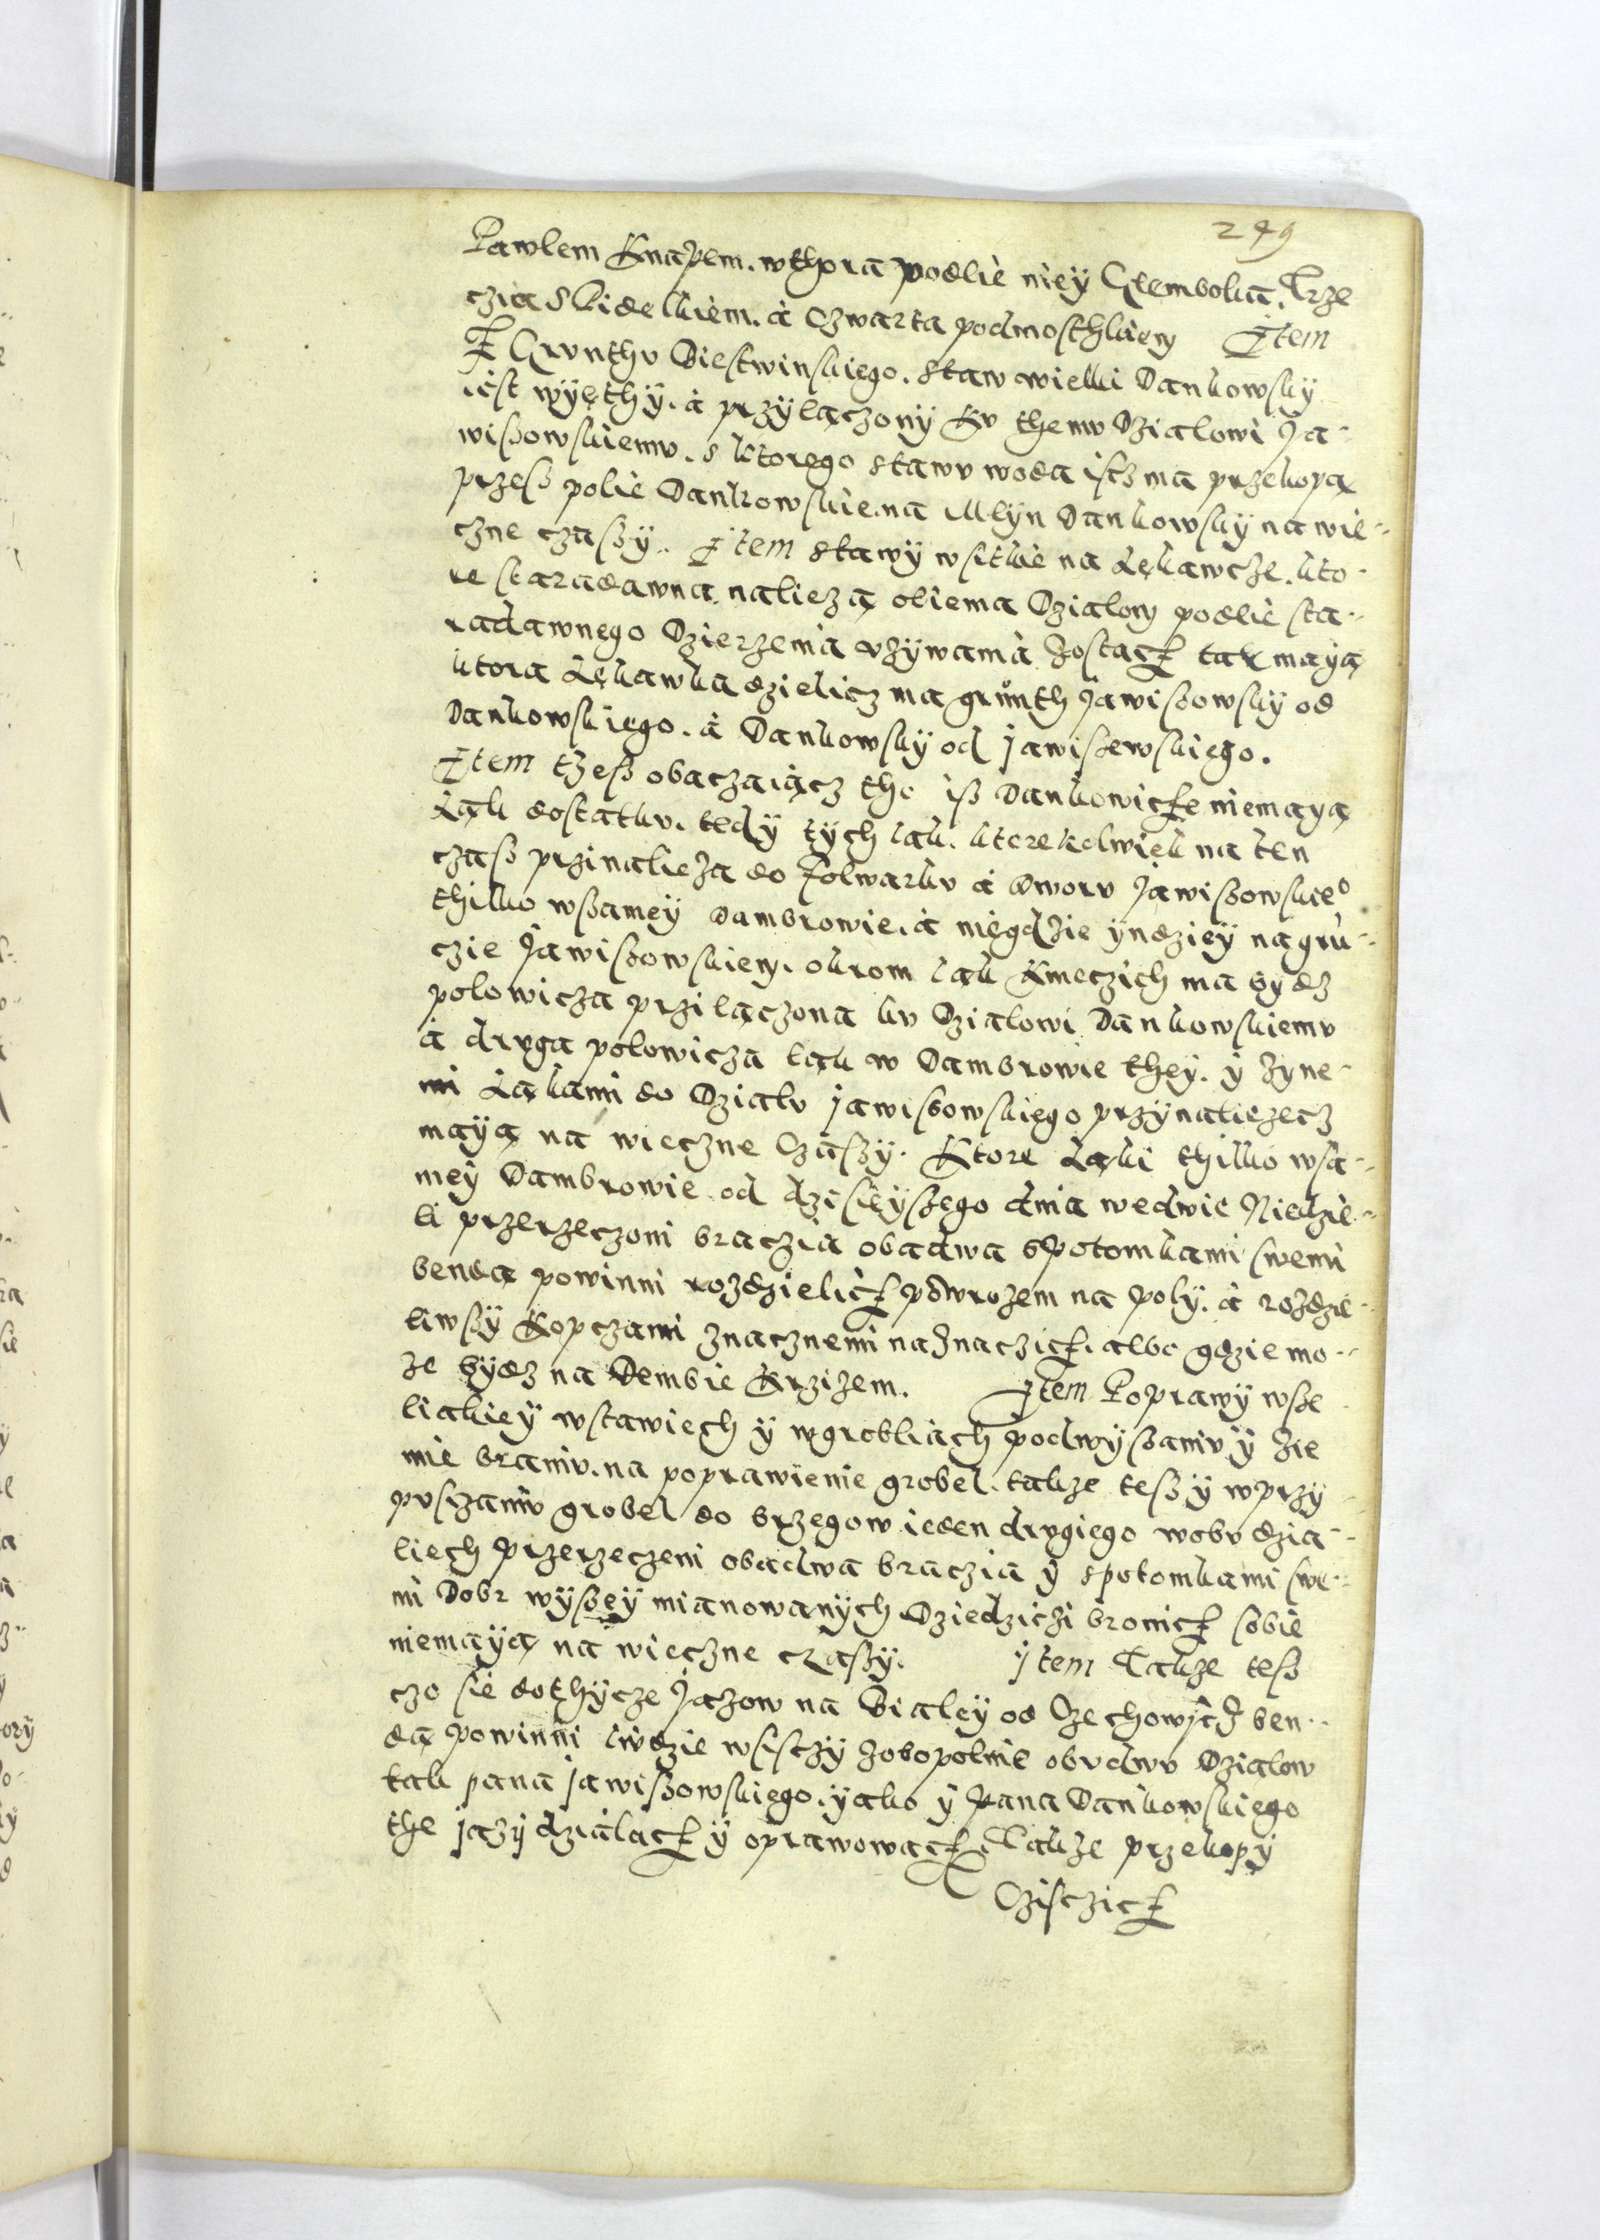 249
Pawlem Knapem. wthora podlie nieÿ Glemboka. Trze
czia S Bidelkiem. à Czwarta podmosthkiem Item
Z Grvnthv Biestwinskiego. staw wielki Dankowskÿ
iest wÿięthÿ. à przÿlączonÿ Kv themv Dzialowi Ja-
wisowskiemv. s ktorego stawv woda iscz ma przekopą
przesz polie Dankowskie. na Mlÿn Dankowskÿ na wie-
czne czassÿ. Item stawÿ wsitkie na Lękawcze. kto-
re staradawna naliezą obiema Dzialom podlie sta-
radawnego Dzierzenia vzÿwania Zostacz tak maÿą
ktora Lękawka dzielicz ma grunth Jawissowskÿ od
Dankowskiego. à Dankowskÿ od jawissewskiego.
Item tzesz obaczaiącz tho isz Dankowicze niemaÿą
Ląk dostatkv. tedÿ tÿch lak. ktorekolwiek na ten
czass przinalieza do Folwarkv à dworv Jawissowskieo
thilko wssameÿ Dambrowie. à niegdzie ÿndzieÿ na gru-
czie Jawissowskiem. okrom ląk Kmeczich ma bÿdz
polowicza przilączona kv Dzialowi Dankowskiemv
à drvga polowicza ląk w Dambrowie theÿ. ÿ zÿne-
mi Ląkami do Dzialv jawissowskiego przÿnaliezecz
maÿą na wieczne Czassÿ. Ktore Ląki thilko wsa-
meÿ Dambrowie od dzisieÿszego dnia wedwie Niedzie-
li przerzeczoni braczia obadwa spotomkami swemi
bendą powinni rozdzielicz powrozem na polÿ. à rozdzie-
liwssÿ Kopczami znacznemi naznaczicz. albo gdzie mo-
ze bÿdz na Dembie Krzizem. Item Poprawÿ wsze
liakieÿ wstawiech ÿ wgrobliach podwÿssaniv ÿ zie
mie braniv. na poprawienie grobel. takze tesz ÿ wprzÿ
pvszaniv grobel do brzegow ieden drvgiego wobv dzia-
liech przerzeczeni obadwa braczia ÿ spotomkami swe-
mi Dobr wÿsseÿ mianowanÿch Dziedziczi bronicz sobie
niemaÿą na wieczne czassÿ. jtem Takze tesz
czo sie dothÿcze Jazow na Bialeÿ od Czechowicz ben-
dą powinni lvdzie wsisczÿ zobopolnie obvdwv Dzialow
tak pana jawissowskiego. ÿako ÿ Pana Dankowskiego
the jazÿ dzialacz ÿ oprawowacz Takze przekopÿ
Czisczicz